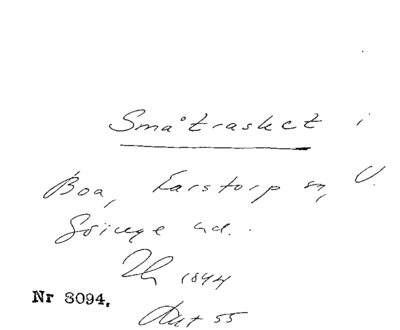 Småtrasket i
Boa, Farstorp sn, V.
Göinge hd.
1844
Nr 3094.
55